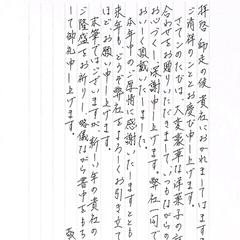 拝啓 師走の候 貴社におかれましてはます
ご清祥のこととお慶び申し上げます。
さてこのたびは、大変豪華な洋菓子の詰
合わせをお贈りいただきまして、いつもながらの
お心づくしに深謝申し上げます。弊社一同で
おいしく頂戴いたしました。
本年中のご厚情に感謝いたしますととも
来年も、どうぞ弊社をよろしくお引き立て
ほどお願い申し上げます。
末筆ではございますが、新しい年の貴社の
ご隆盛をお祈りし、略儀ながら書中をもち
して御礼申し上げます。
敬